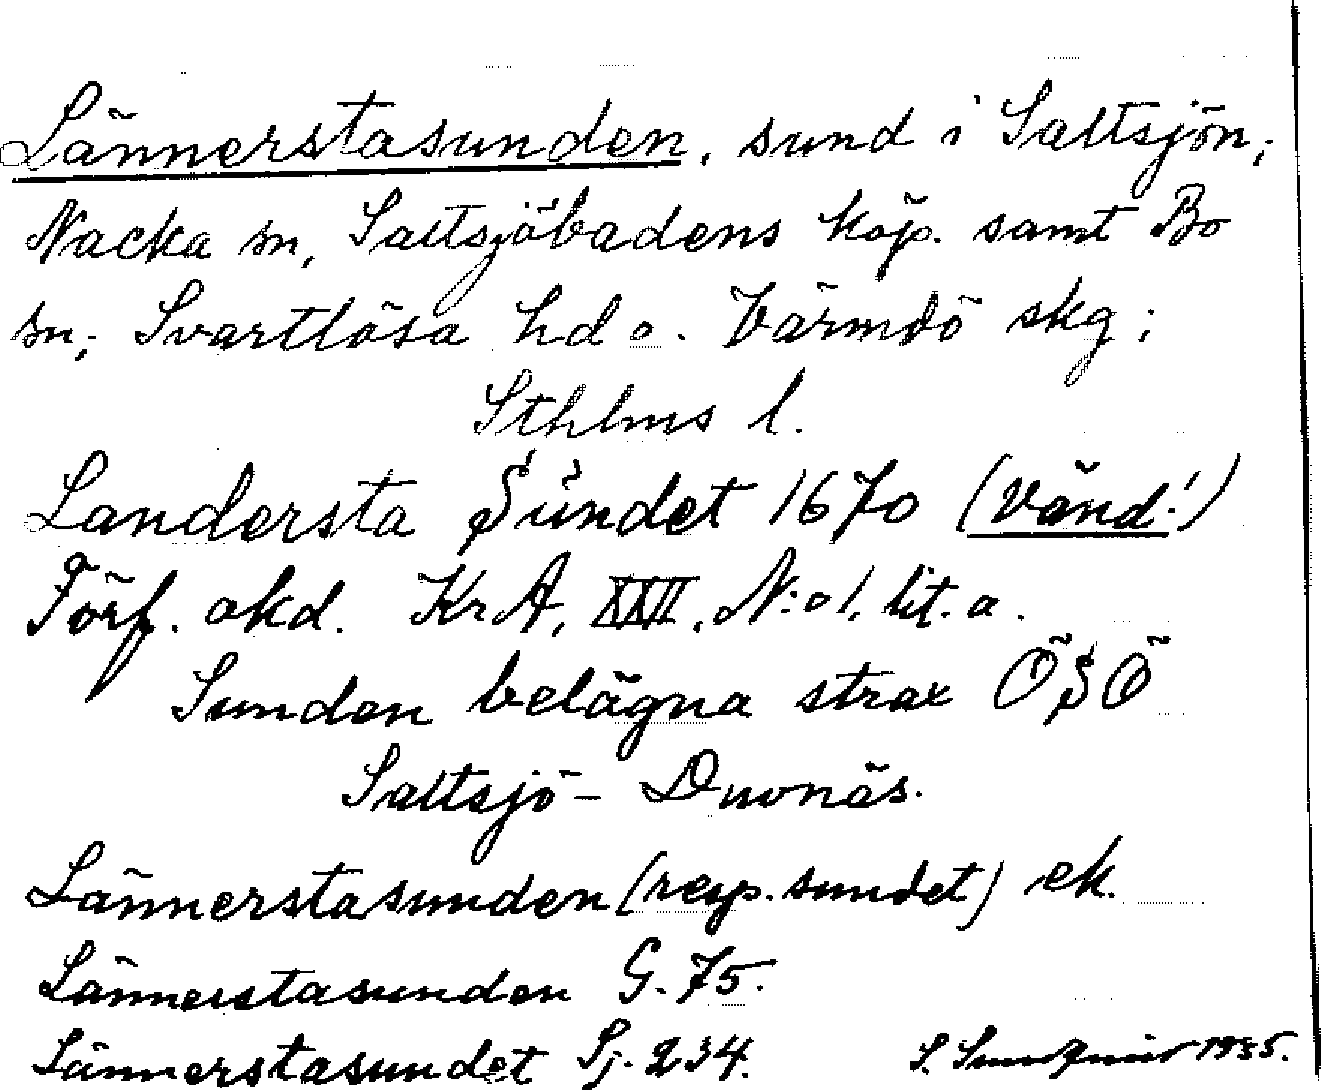 Lännerstasunden, sund i Saltsjön;
Nacka sn, Saltsjöbadens köp. samt Bo
sn; Svartlösa hd o. Värmdö skg;
Sthlms l.
Landersta Sundet 1670 (vänd!)
Förf. okd. KrA, XXII, N:o 1. lit. a.
Sunden belägna strax ÖSÖ
Saltsjö-Duvnäs.
Lännerstasunden (resp. sundet) ek.
Lännerstasunden G. 75.
Lännerstasundet Sj. 234. S. 1935.